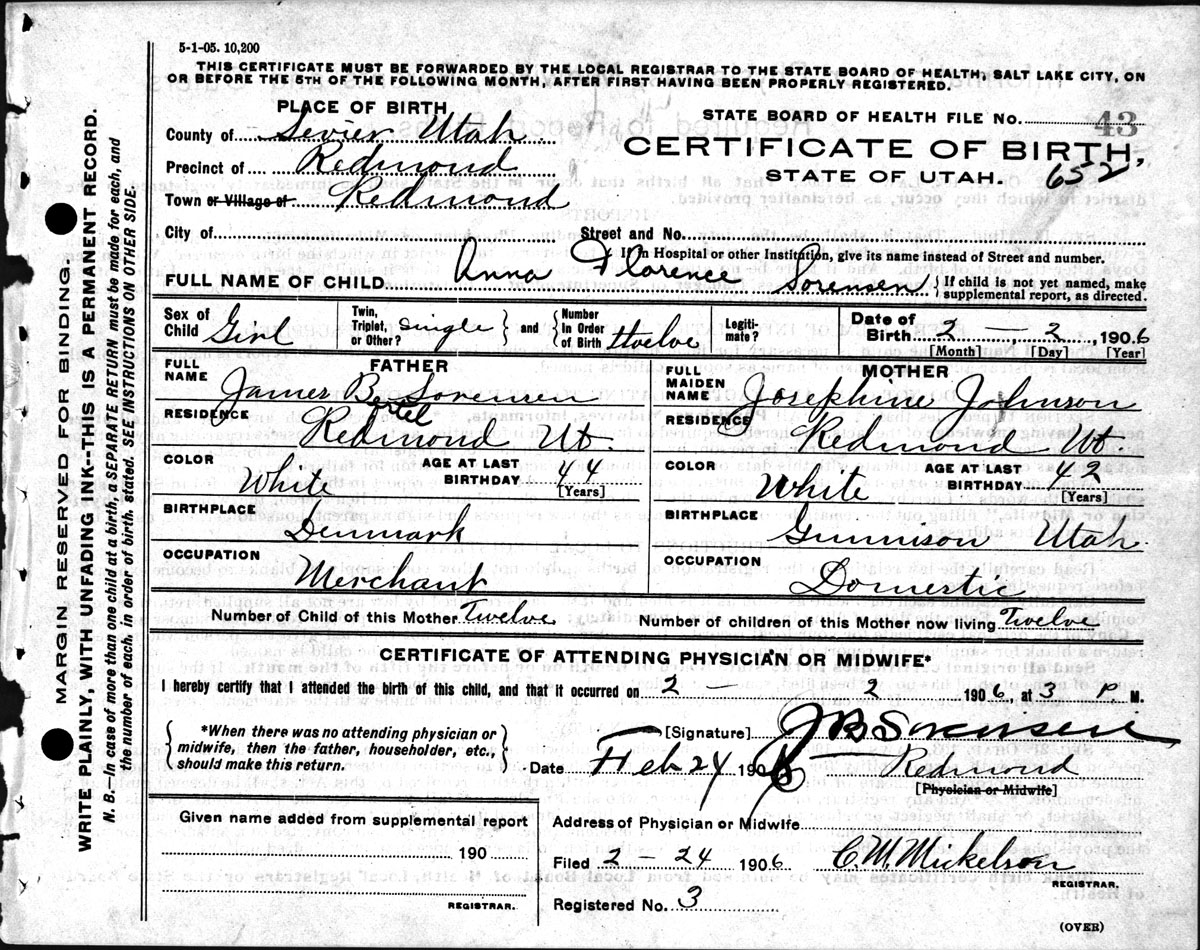 5-1-05. 10,200
THIS CERTIFICATE MUST BE FORWARDED BY THE LOCAL REGISTRAR TO THE STATE BOARD OF HEALTH, SALT LAKE CITY, ON
OR BEFORE THE 5TH OF THE FOLLOWING MONTH, AFTER FIRST HAVING BEEN PROPERLY REGISTERED.
PLACE OF BIRTH
STATE BOARD OF HEALTH FILE No. 43
County of Sevier Utah
CERTIFICATE OF BIRTH,
Precinct of Redmond
STATE OF UTAH. 652
Town or Village of Redmond
City of Street and No.
If in Hospital or other Institution, give its name instead of Street and number.
FULL NAME OF CHILD Anna Florence Sorensen { If child is not yet named, make
supplemental report, as directed.
Sex of Child Girl Twin, Triplet, or Other? single } and { Number In Order of Birth twelve Legiti- mate? Date of Birth 2 - 2, 1906
[Month] [Day] [Year]
FATHER
FULL NAME James B Sorensen
Bertel
RESIDENCE Redmond Ut.
COLOR White AGE AT LAST BIRTHDAY 44
[Years]
BIRTHPLACE Denmark
OCCUPATION Merchant
MOTHER
FULL MAIDEN NAME Josephine Johnson
RESIDENCE Redmond Ut.
COLOR White AGE AT LAST BIRTHDAY 42
[Years]
BIRTHPLACE Gunnison Utah
OCCUPATION Domestic
Number of Child of this Mother Twelve Number of children of this Mother now living Twelve
CERTIFICATE OF ATTENDING PHYSICIAN OR MIDWIFE*
I hereby certify that I attended the birth of this child, and that it occurred on 2 - 2 1906, at 3 P. M.
{ *When there was no attending physician or
midwife, then the father, householder, etc.,
should make this return. }
[Signature] J B Sorensen
Date Feb 24 1906 Redmond
[Physician or Midwife]
Given name added from supplemental report
190
REGISTRAR.
Address of Physician or Midwife
Filed 2 - 24 1906 C. M. Mickelson
REGISTRAR.
Registered No. 3
(OVER)
MARGIN RESERVED FOR BINDING.
WRITE PLAINLY, WITH UNFADING INK--THIS IS A PERMANENT RECORD.
N. B.—In case of more than one child at a birth, a SEPARATE RETURN must be made for each, and
the number of each, in order of birth, stated. SEE INSTRUCTIONS ON OTHER SIDE.